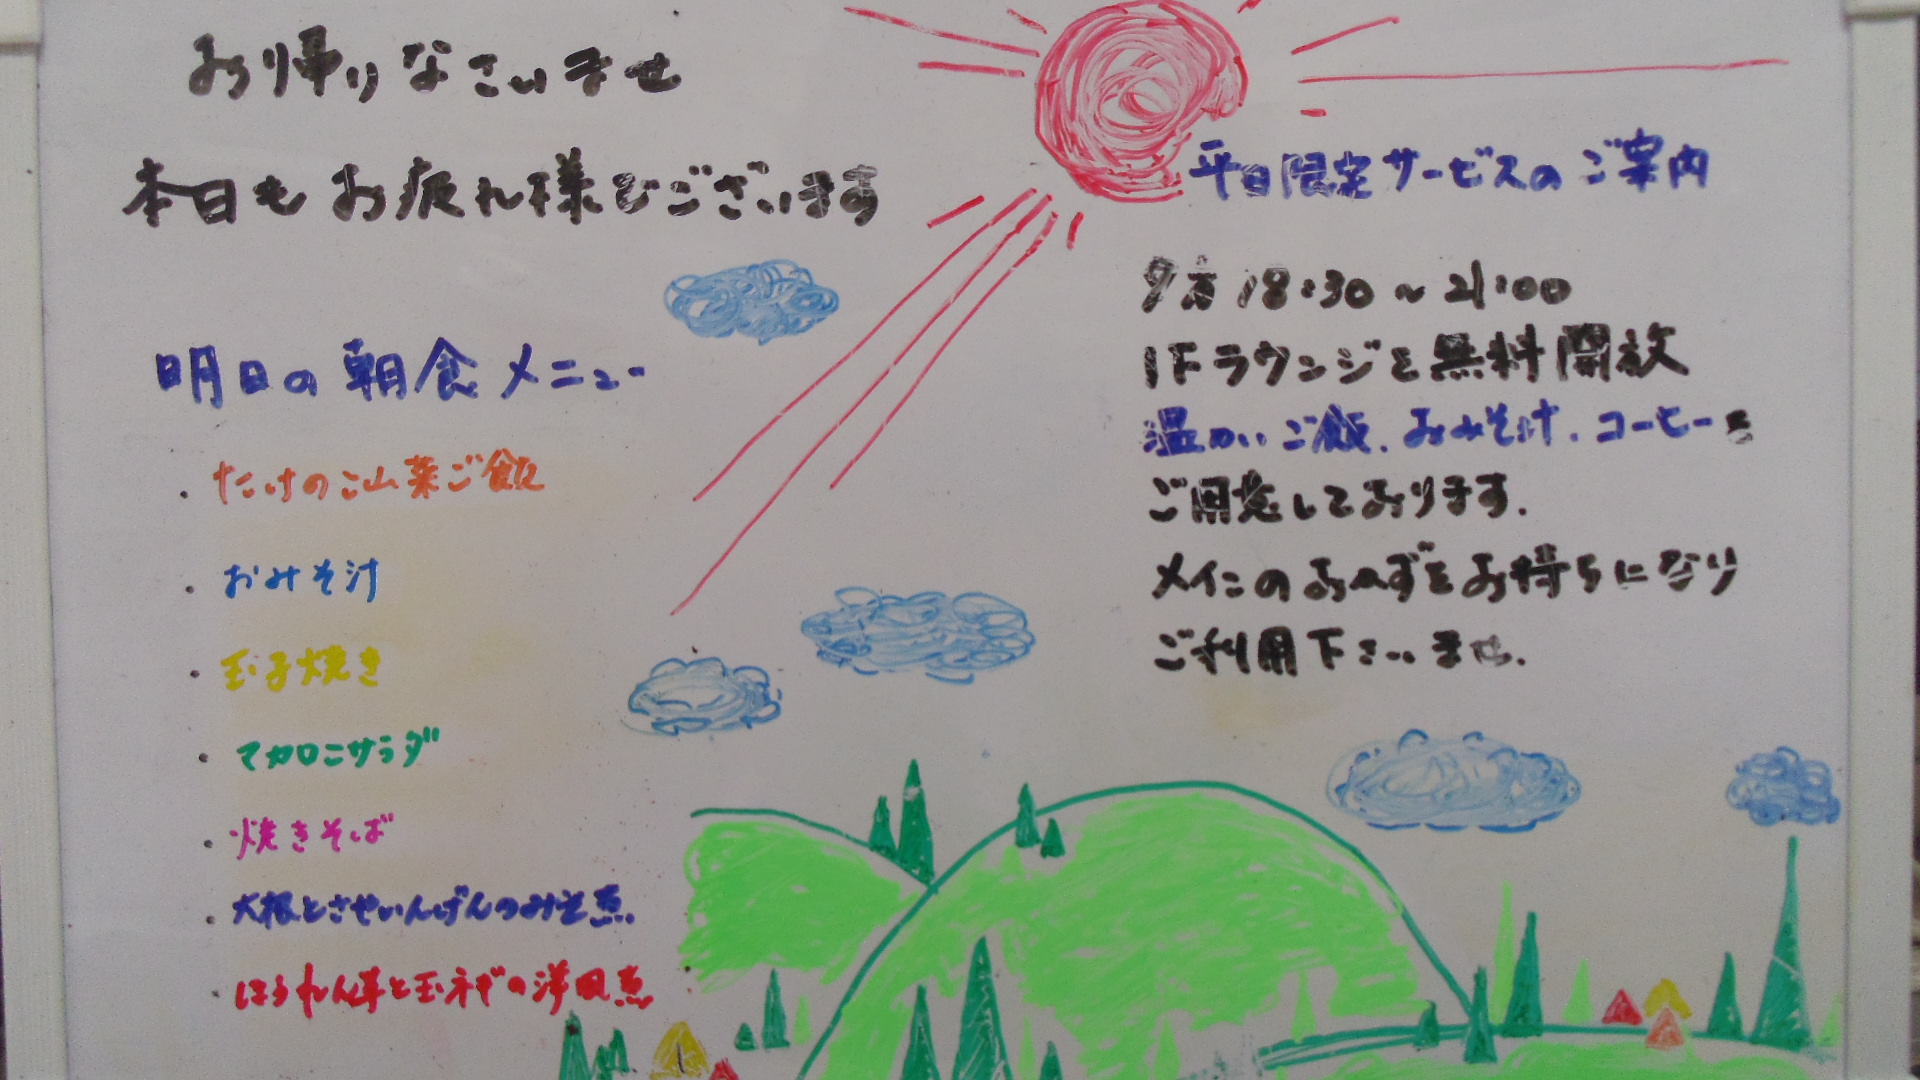 お帰りなさいませ
本日もお疲れ様でございます
明日の朝食メニュー
・たけのこ山菜ご飯
・おみそ汁
・玉子焼き
・マカロニサラダ
・焼きそば
・大根とさやいんげんのみそ煮
・ほうれん草と玉ネギの洋風煮
平日限定サービスのご案内
夕方18:30~21:00
1Fラウンジを無料開放
温かいご飯、おみそ汁、コーヒーを
ご用意しております。
メインのおかずをお持ちになり
ご利用下さいませ。